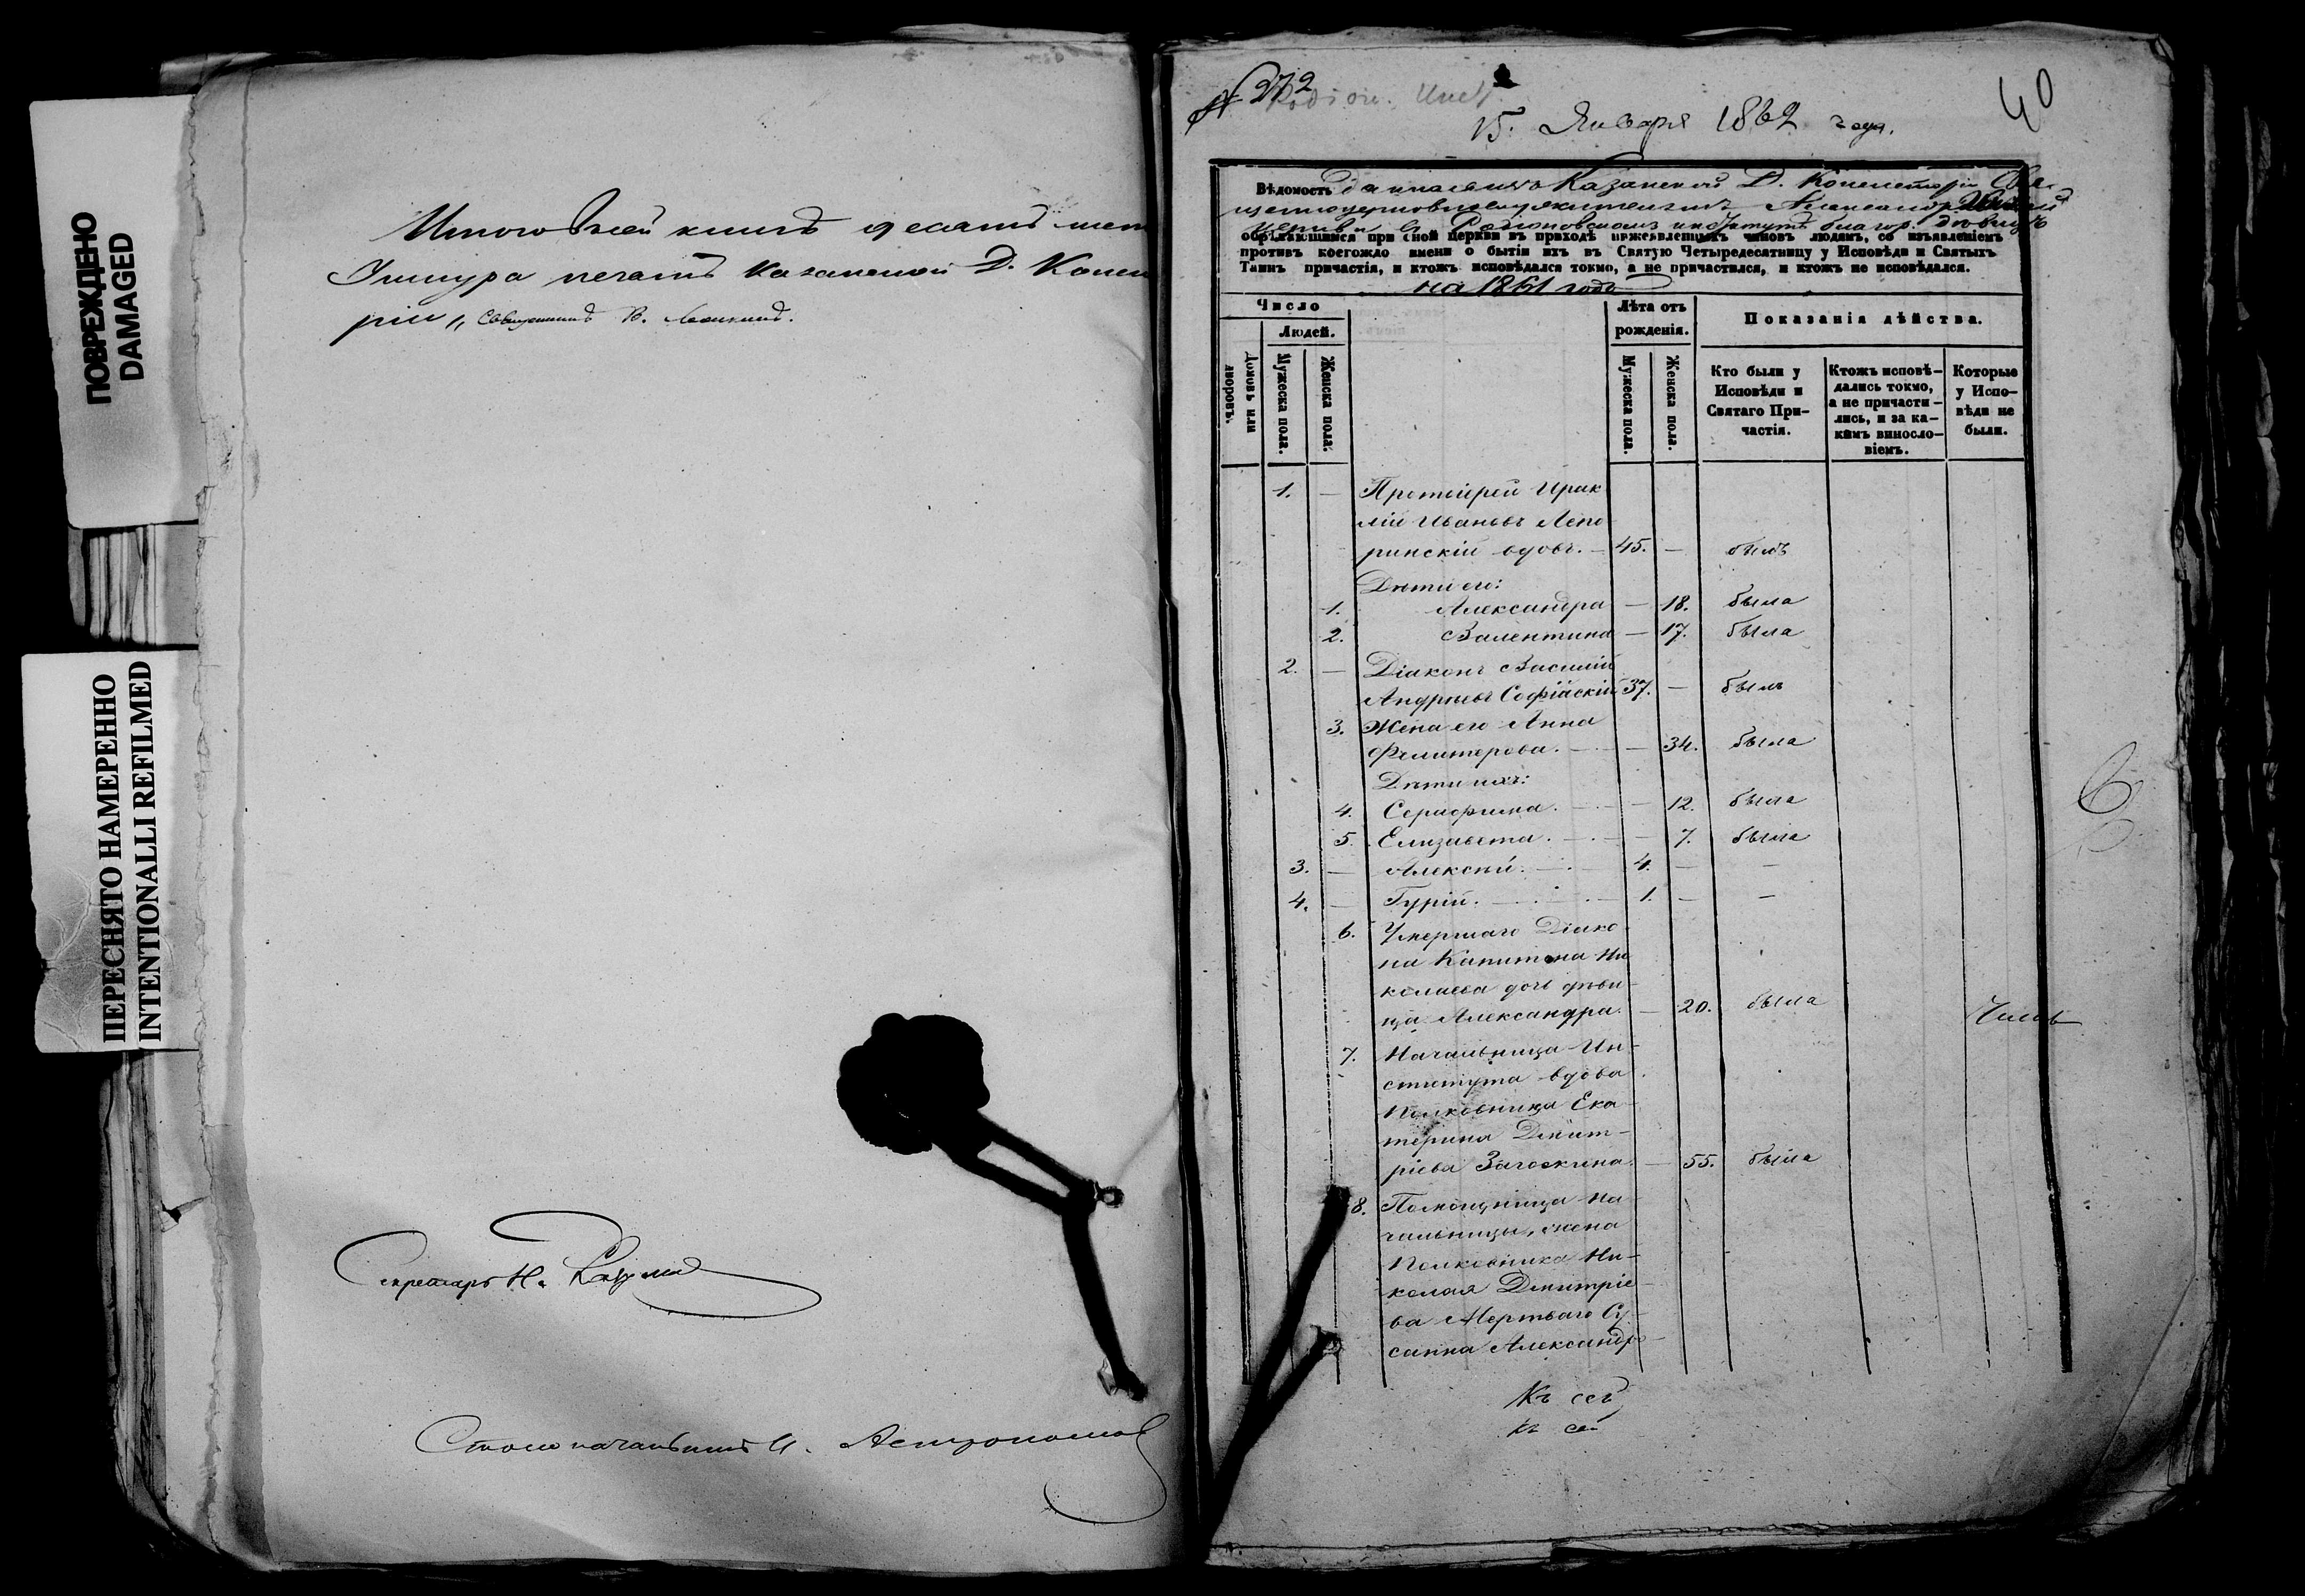 ПОВРЕЖДЕНО
DAMAGED
ПЕРЕСНЯТО НАМЕРЕННО
INTENTIONALLI REFILMED
Итого въ сей книгѣ десять
печать Казанской Д. Консі
ріи
Секретарь Н.
Столоначальникъ И. Астрономовъ
№ 272
15. Января 1862 года.
40
Вѣдомость данная изъ Казанской Д. Консисторіи Свя-
церкви въ Родіоновскомъ институтѣ благор. дѣвицъ
обрѣтающимся при оной церкви въ приходѣ нижеявленныхъ чиновъ людямъ, со изъявленіемъ
противъ коегождо имени о бытіи ихъ въ Святую Четыредесятницу у Исповѣди и Святыхъ
Таинъ причастія, и ктожъ исповѣдался токмо, а не причастился, и ктожъ не исповѣдался.
на 1861 годъ
Число
Людей.
Домовъ или дворовъ.
Мужеска пола.
Женска пола.
Лѣта отъ
рожденія.
Мужеска пола.
Женска пола.
Показанія дѣйства.
Кто были у
Исповѣди и
Святаго При-
частія.
Ктожъ исповѣ-
дались токмо,
а не причасти-
лись, и за ка-
кимъ виносло-
віемъ.
Которые
у Испо-
вѣди не
были.
1. — Протоіерей Ирак
лій Ивановъ Лепо
ринскій вдовъ. — 45. — былъ
Дѣти его:
1. Александра — 18. была
2. Валентина — 17. была
2. — Діаконъ Василій
Андреевъ Софійскій 37. — былъ
3. Жена его Анна
Филитерова. — — 34. была
Дѣти ихъ:
4. Серафима. — — 12. была
5. Елизавета. — — 7. была
3. — Алексѣй. — 4. — —
4. — Гурій. — 1. — —
6. Умершаго Діако
на Капитона Ни
колаева дочь дѣви-
ца Александра. — 20. была
7. Начальница Ин-
ститута вдова
Полковница Ека-
терина Дмит-
ріева Загоскина. — 55. была
8. Помощница На-
чальницы, жена
Полковника Ни-
колая Дмитріе-
ва Мертваго Су-
санна Александро-
Къ сей
Къ сей